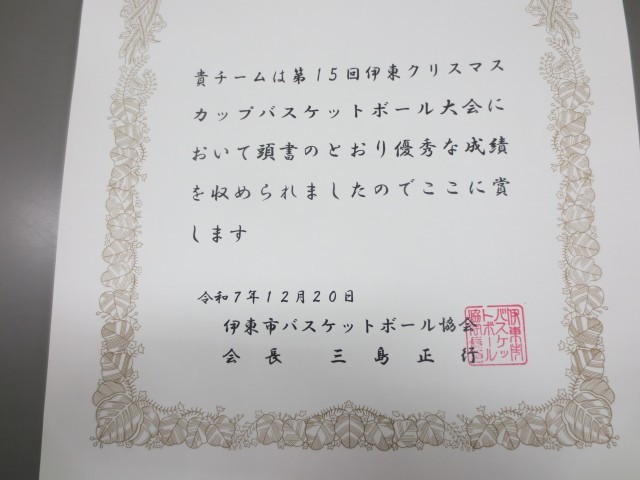 貴チームは第15回伊東クリスマス
カップバスケットボール大会に
おいて頭書のとおり優秀な成績
を収められましたのでここに賞
します
令和7年12月20日
伊東市バスケットボール協会
会長 三島正行
伊東市
バスケッ
トボール